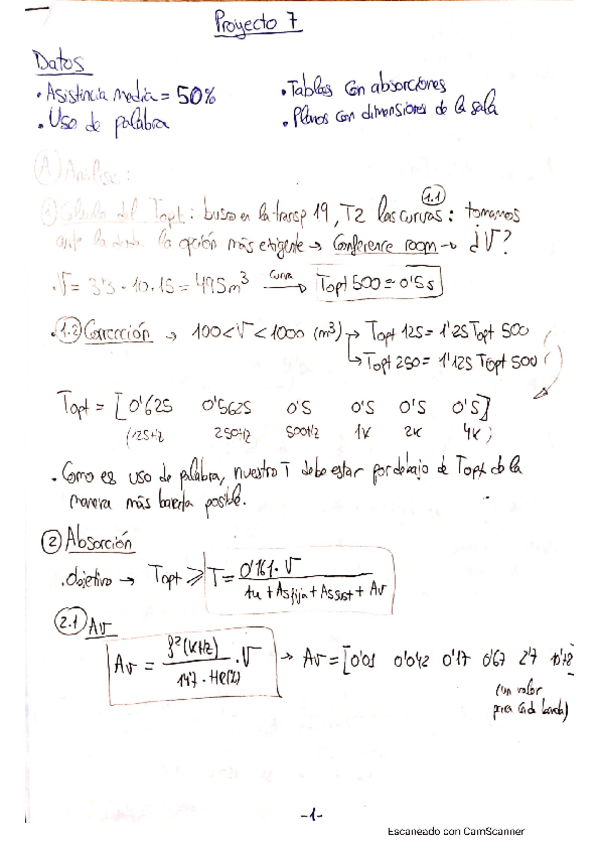 Proyecto 7
Datos
• Asistencia media = 50%
• Uso de palabra
• Tablas con absorciones
• Planos con dimensiones de la sala
A) Análisis:
1) Cálculo del Topt: busco en la transp 19, T2 las curvas: (1.1) tomamos
ante la duda la opción más exigente → Conference room → ¿V?
• V = 3'3 · 10 · 15 = 495 m³ curva → Topt 500 = 0'5 s
• 1.2) Corrección → 100 < V < 1000 (m³) → Topt 125 = 1'25 Topt 500
↳ Topt 250 = 1'125 Topt 500
Topt = [0'625 0'5625 0'5 0'5 0'5 0'5]
125Hz 250Hz 500Hz 1K 2K 4K ;
• Como es uso de palabra, nuestro T debe estar por debajo de Topt de la
manera más barata posible.
2) Absorción
• Objetivo → Topt ≥ T = 0'161 · V / Au + Asfija + Assist + Av
2.1) Av
Av = f²(KHz) / 147 · HR(%) · V → Av = [0'01 0'042 0'17 0'67 2'7 10'8
(un valor
para cada banda)
-1-
Escaneado con CamScanner